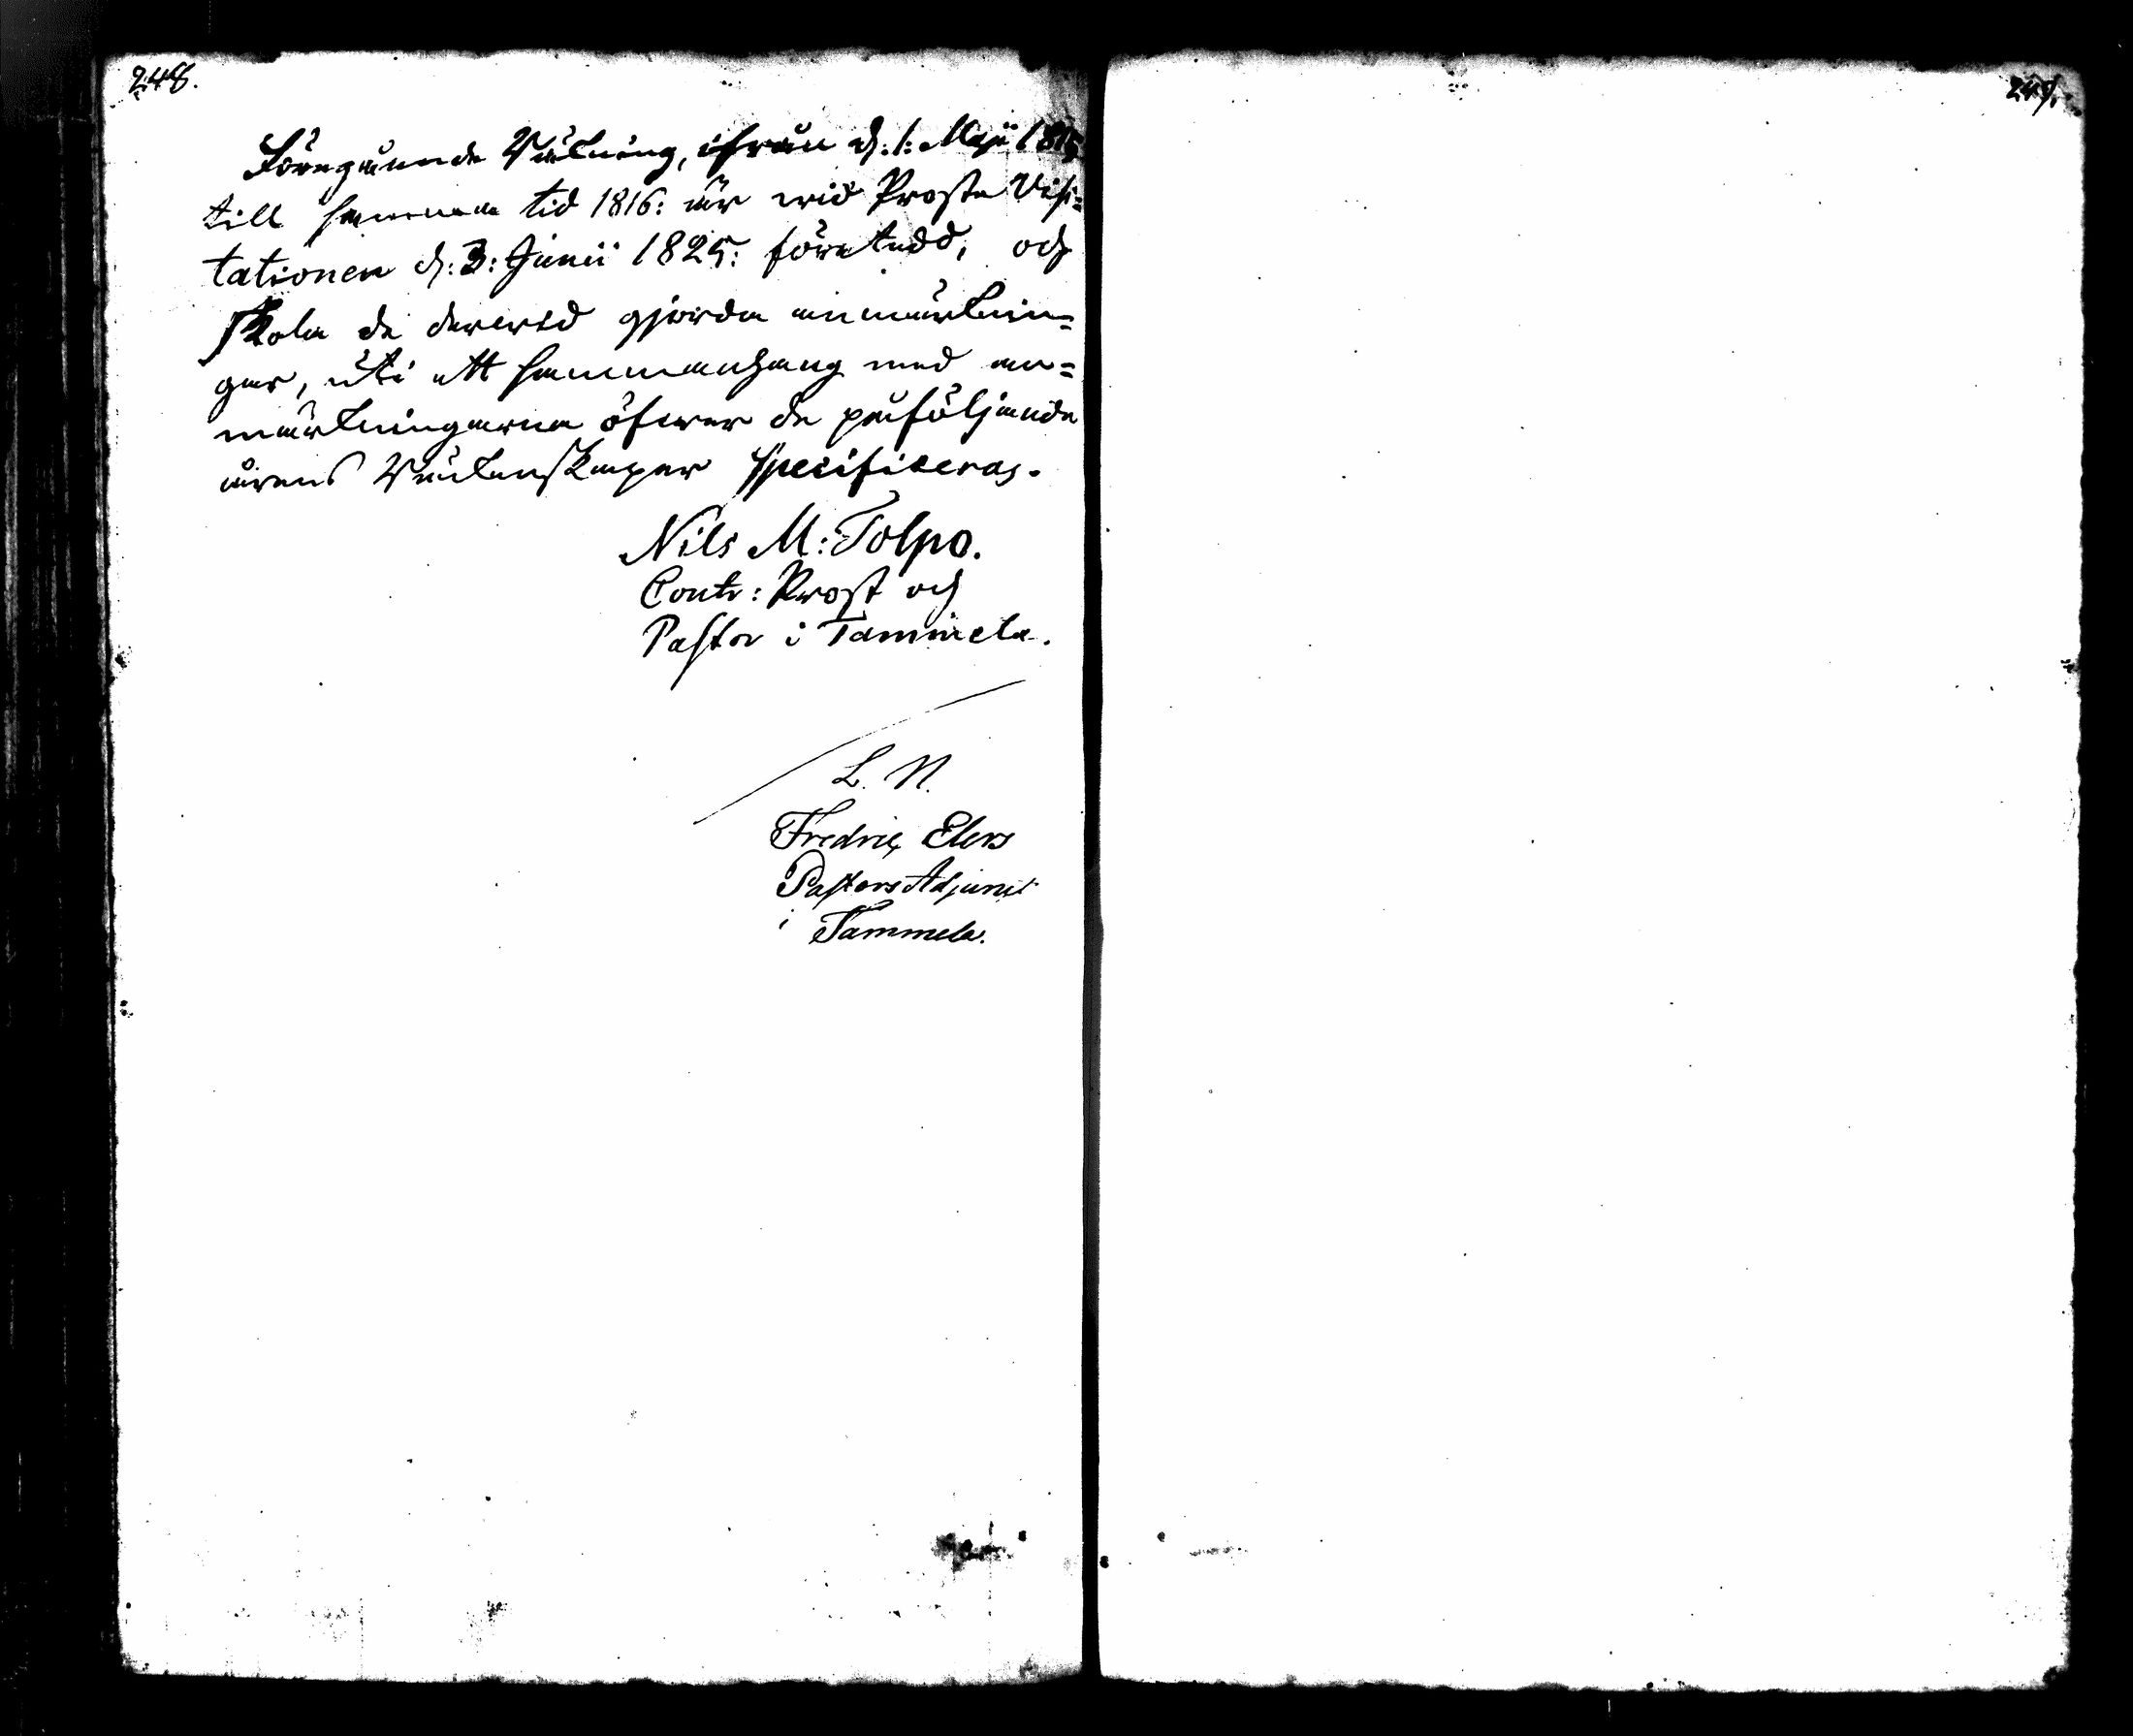 248.
Föregående Räkning, ifrån d. 1: Maji 1815
till samma tid 1816: är wid Prosta Visi=
tationen d: 3: Junii 1825: företedd, och
skola de derwid gjorda anmärknin=
gar, uti ett sammanhang med an=
märkningarna öfwer de påföljande
årens Räkenskaper specificeras.
Nils M: Tolpo.
Contr: Prost och
Pastor i Tammela.
L. N.
Fredric Elers
Pastors Adjunct
i Tammela.
249.